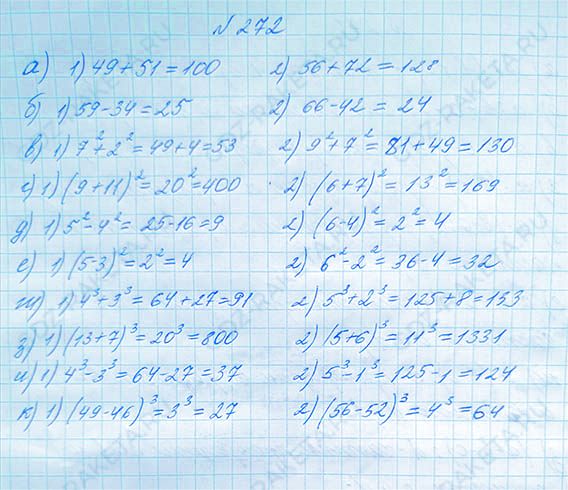 N 272
а) 1) 49+51=100 2) 56+72=128
б) 1) 59-34=25 2) 66-42=24
в) 1) 7²+2²=49+4=53 2) 9²+7²=81+49=130
г) 1) (9+11)²=20²=400 2) (6+7)²=13²=169
д) 1) 5²-4²=25-16=9 2) (6-4)²=2²=4
е) 1) (5-3)²=2²=4 2) 6²-2²=36-4=32
ж) 1) 4³+3³=64+27=91 2) 5³+2³=125+8=133
з) 1) (13+7)³=20³=800 2) (5+6)³=11³=1331
и) 1) 4³-3³=64-27=37 2) 5³-1³=125-1=124
к) 1) (49-46)³=3³=27 2) (56-52)³=4³=64